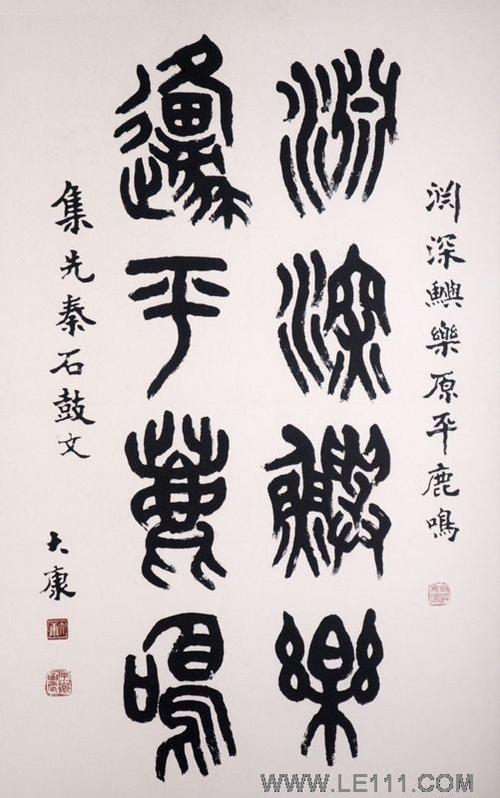 渊深鱮樂原平鹿鳴
淵深鱮樂
邍平鹿鳴
集先秦石鼓文
大康
WWW.LE111.COM